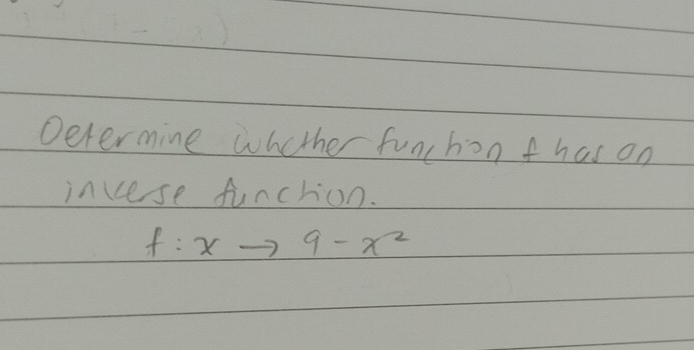 Determine whether function f has an
inverse function.
f : x → 9 - x²